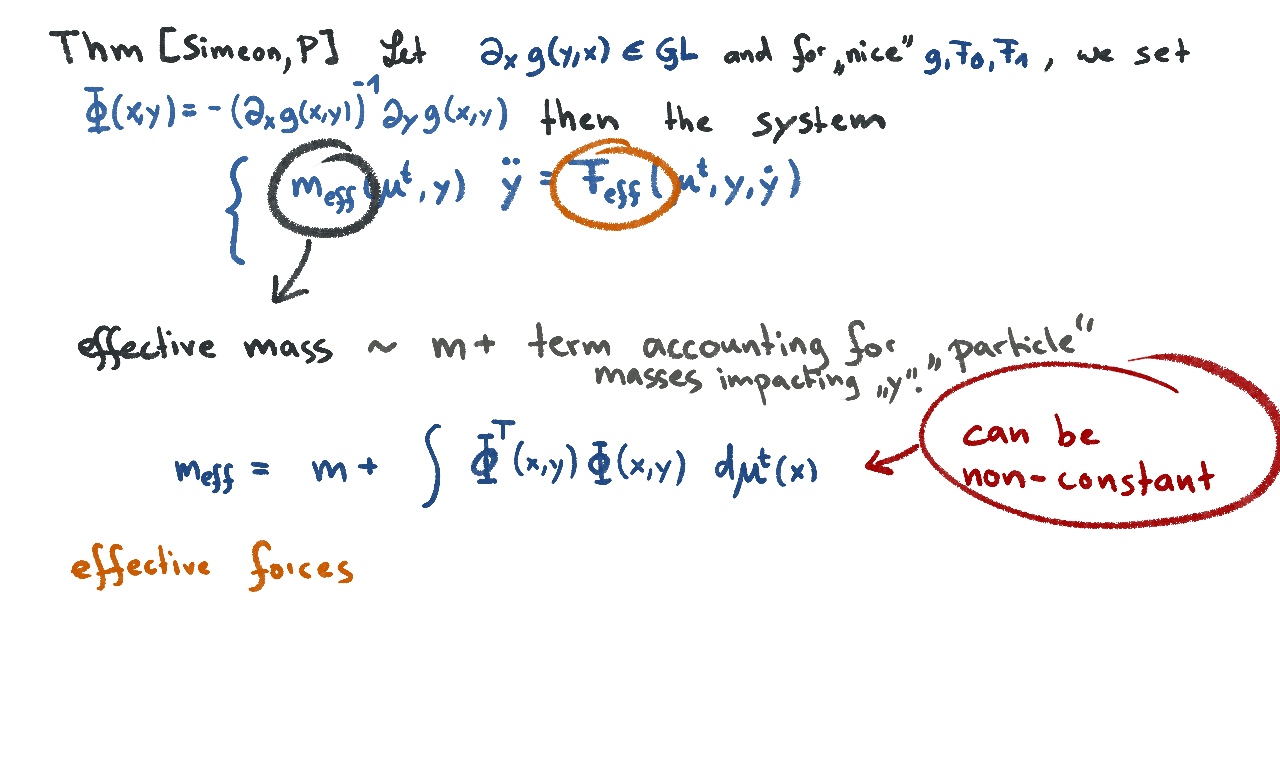 Thm [Simeon, P] Let ∂ₓ g(y,x) ∈ GL and for „nice" g, F₀, F₁, we set
Φ(x,y) = - (∂ₓg(x,y))⁻¹ ∂ᵧ g(x,y) then the system
{ m_eff(μᵗ, y) ÿ = F_eff(μᵗ, y, ẏ)
effective mass ~ m + term accounting for „particle"
masses impacting „y".
can be
m_eff = m + ∫ Φᵀ(x,y) Φ(x,y) dμᵗ(x)
non-constant
effective forces